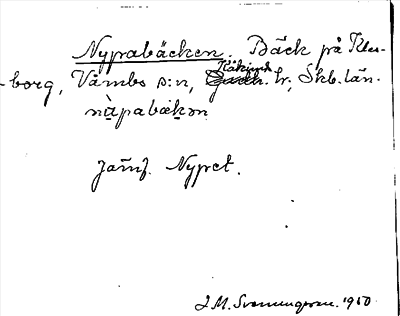 Nyprabäcken. Bäck på Klu-
-borg, Våmbs s:n, Kåkinds hr, Skb. län.
nỳpabækən
Jämf. Nypret.
J.M. Svenningsson. 1950